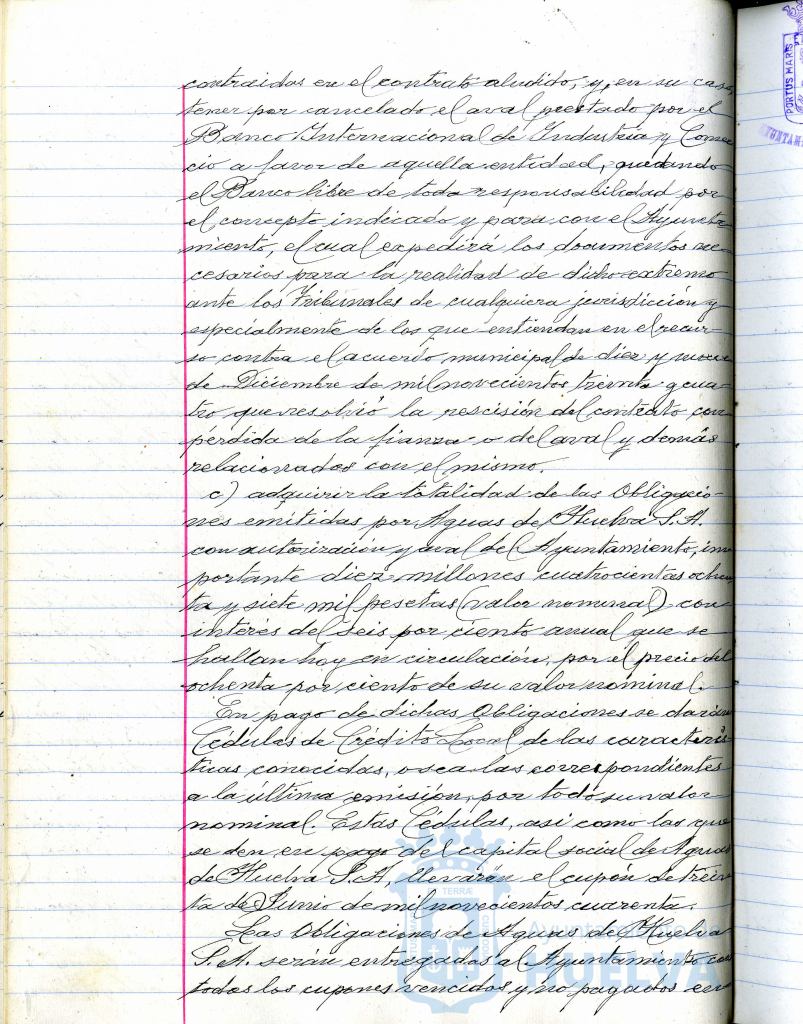 contraidas en el contrato aludido, y, en su caso,
tener por cancelado el aval prestado por el
Banco Internacional de Industria y Comer
cio a favor de aquella entidad, quedando
el Banco libre de toda responsabilidad por
el concepto indicado y para con el Ayunta
miento, el cual expedirá los documentos ne-
cesarios para la realidad de dicho extremo
ante los Tribunales de cualquiera jurisdicción y
especialmente de los que entiendan en el recur-
so contra el acuerdo municipal de diez y nueve
de Diciembre de mil novecientos treinta y cua-
tro que resolvió la rescisión del contrato con
pérdida de la fianza o del aval y demás
relacionados con el mismo.
c) adquirir la totalidad de las Obligacio-
nes emitidas por Aguas de Huelva S.A.
con autorización y aval del Ayuntamiento, im
portante diez millones cuatrocientas ochen
ta y siete mil pesetas (valor nominal) con
interés del seis por ciento anual que se
hallan hoy en circulación, por el precio del
ochenta por ciento de su valor nominal.
En pago de dichas Obligaciones se darán
Cédulas de Crédito Local de las caracterís
ticas conocidas, o sea las correspondientes
a la última emisión, por todo su valor
nominal. Estas Cédulas, así como las que
se den en pago del capital social de Aguas
de Huelva S.A, llevarán el cupón de trein
ta de Junio de mil novecientos cuarenta.
Las Obligaciones de Aguas de Huelva
S.A. serán entregadas al Ayuntamiento con
todos los cupones vencidos y no pagados en
PORTUS MARIS
AYUNTAM
TERRÆ
HUELVA